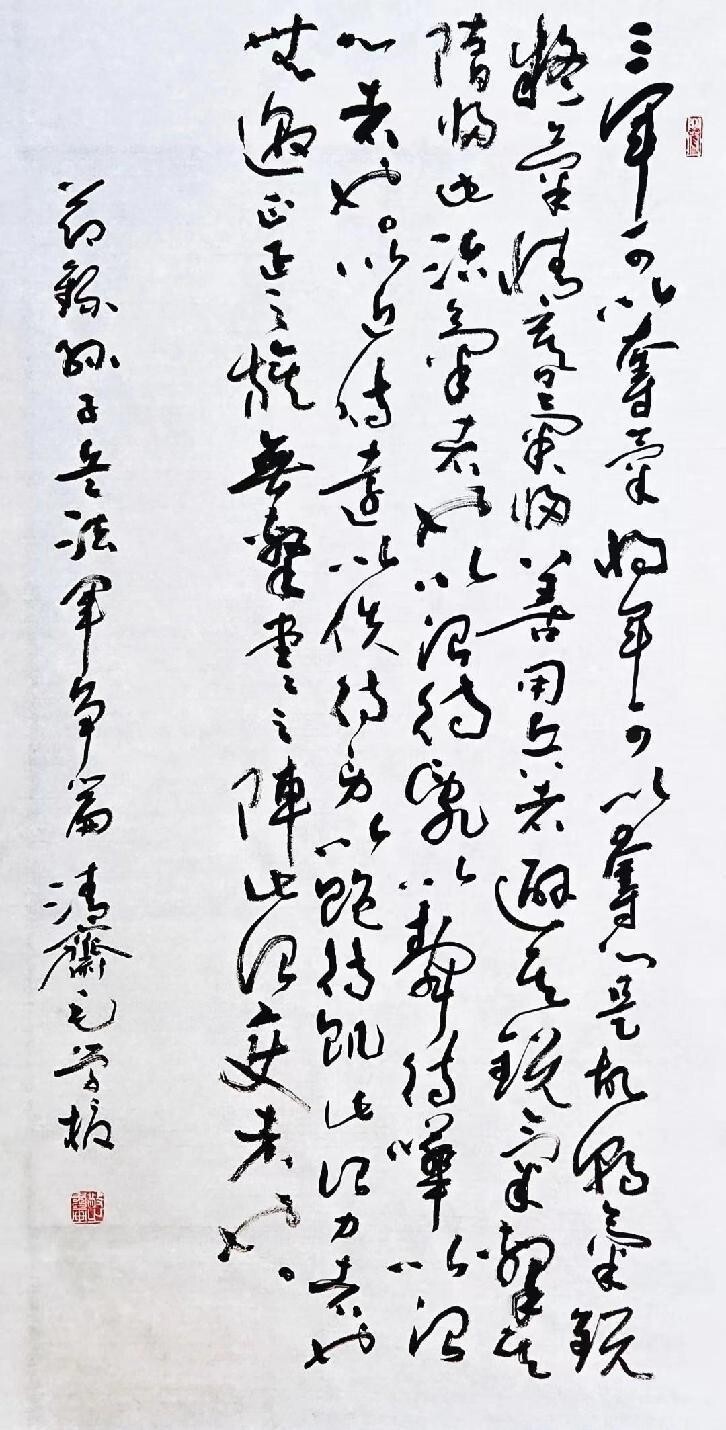 三軍可以奪氣將軍可以奪心是故朝氣銳
氣惰暮氣歸善用兵者避其銳氣擊其
隋歸此治氣者也以治待亂以靜待嘩以治
心者也。以近待遠以佚待勞以飽待飢此治力者也
無邀正正之旗無擊堂堂之陣此治變者也。
節錄孫子兵法軍爭篇 清齋毛学